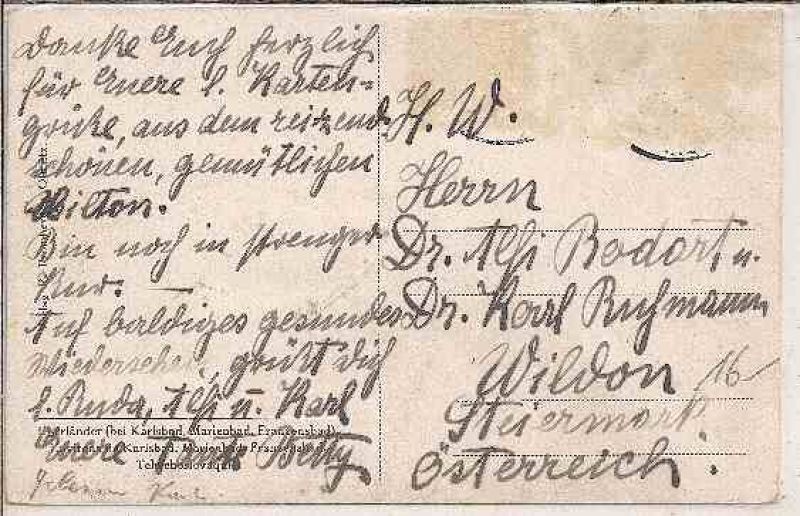 Danke Euch herzlich
für Euere l. Karten=
grüße, aus dem reizend
schönen, gemütlichen
Wildon.
Bin noch in strenger
Kur. —
Auf baldiges gesundes
Wiedersehen, grüßt Dich
l. Ruda, Alfi u. Karl
Euere Betty
(bei Karlsbad, Marienbad, Franzensbad)
Karlsbad, Marienbad,
H. W.
Herrn
Dr. Alfi Bodart u.
Dr. Karl Ruhmann
Wildon 16
Steiermark.
Österreich.